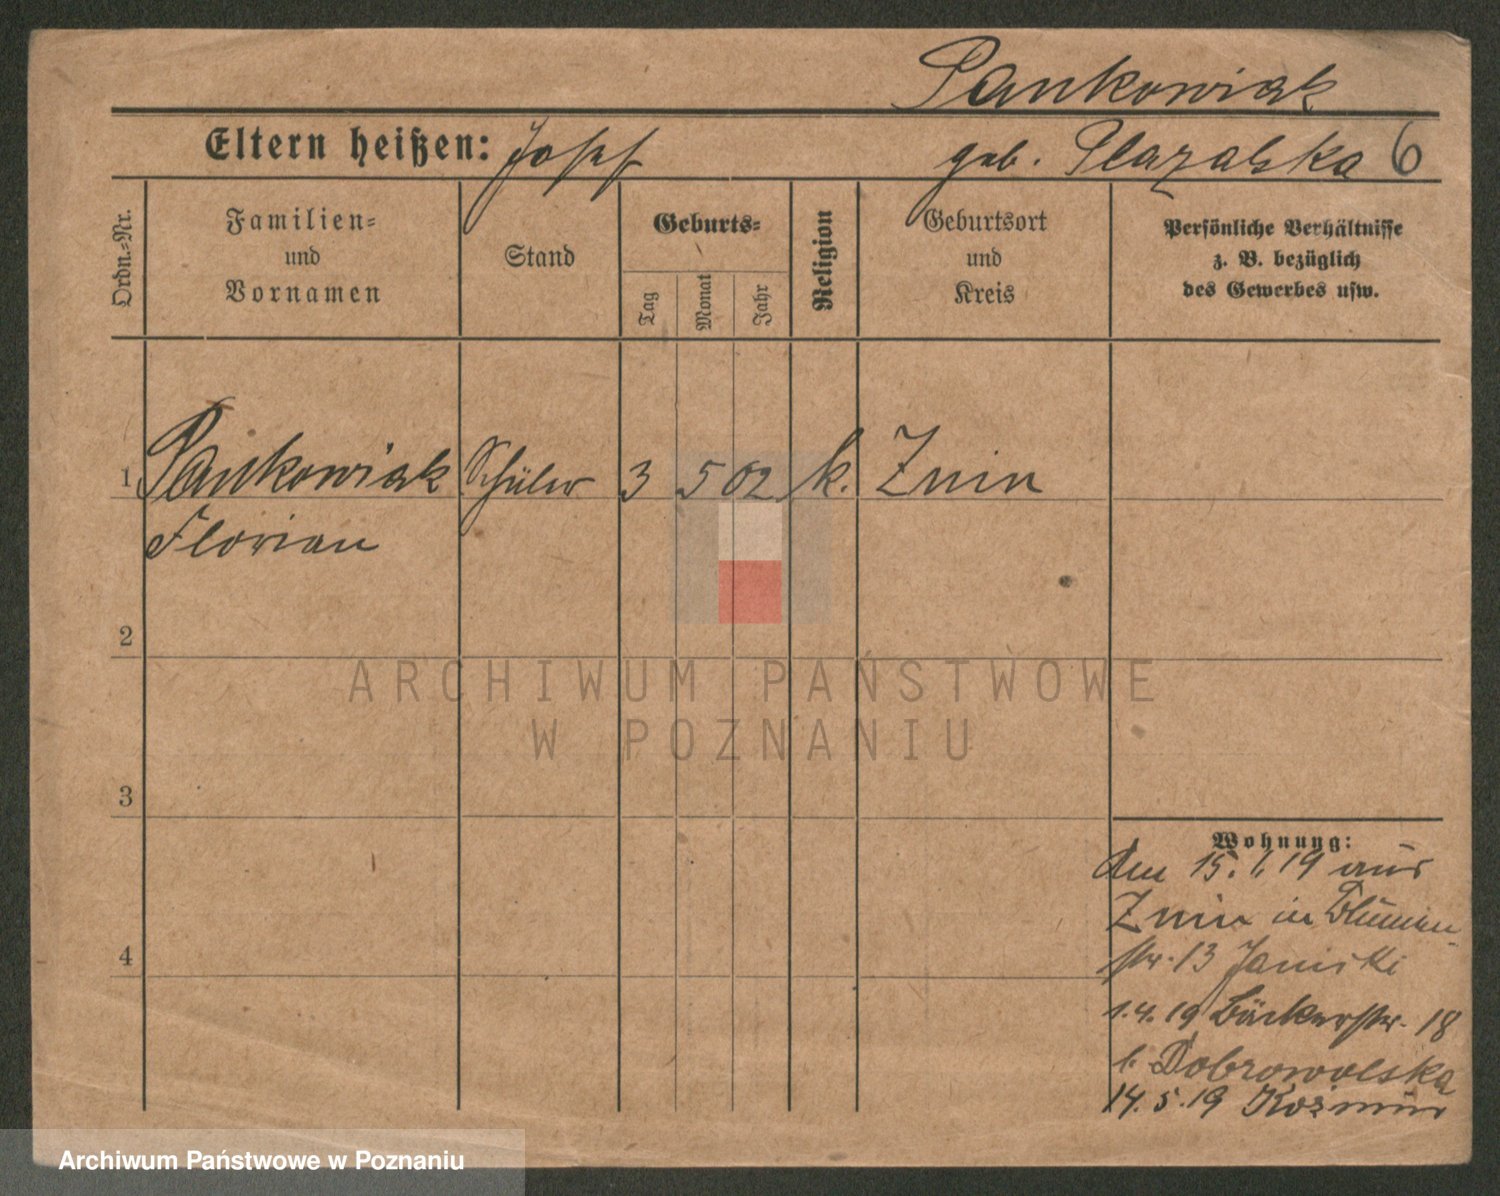 Pankowiak
Eltern heißen: Josef geb. 6
Ordn.-Nr.
Familien-
und
Vornamen
Stand
Geburts-
Tag
Monat
Jahr
Religion
Geburtsort
und
Kreis
Persönliche Verhältnisse
z. B. bezüglich
des Gewerbes usw.
1 Pankowiak Schüler 3 5 02 k. Znin
Florian
2
ARCHIWUM PAŃSTWOWE
W POZNANIU
3
Wohnung:
Den 15.1.19 aus
Znin in Blumen-
str. 13 Janicki
4
1.4.19 Bäckerstr. 18
b. Dobrowolska
14.5.19 Kozmin
Archiwum Państwowe w Poznaniu